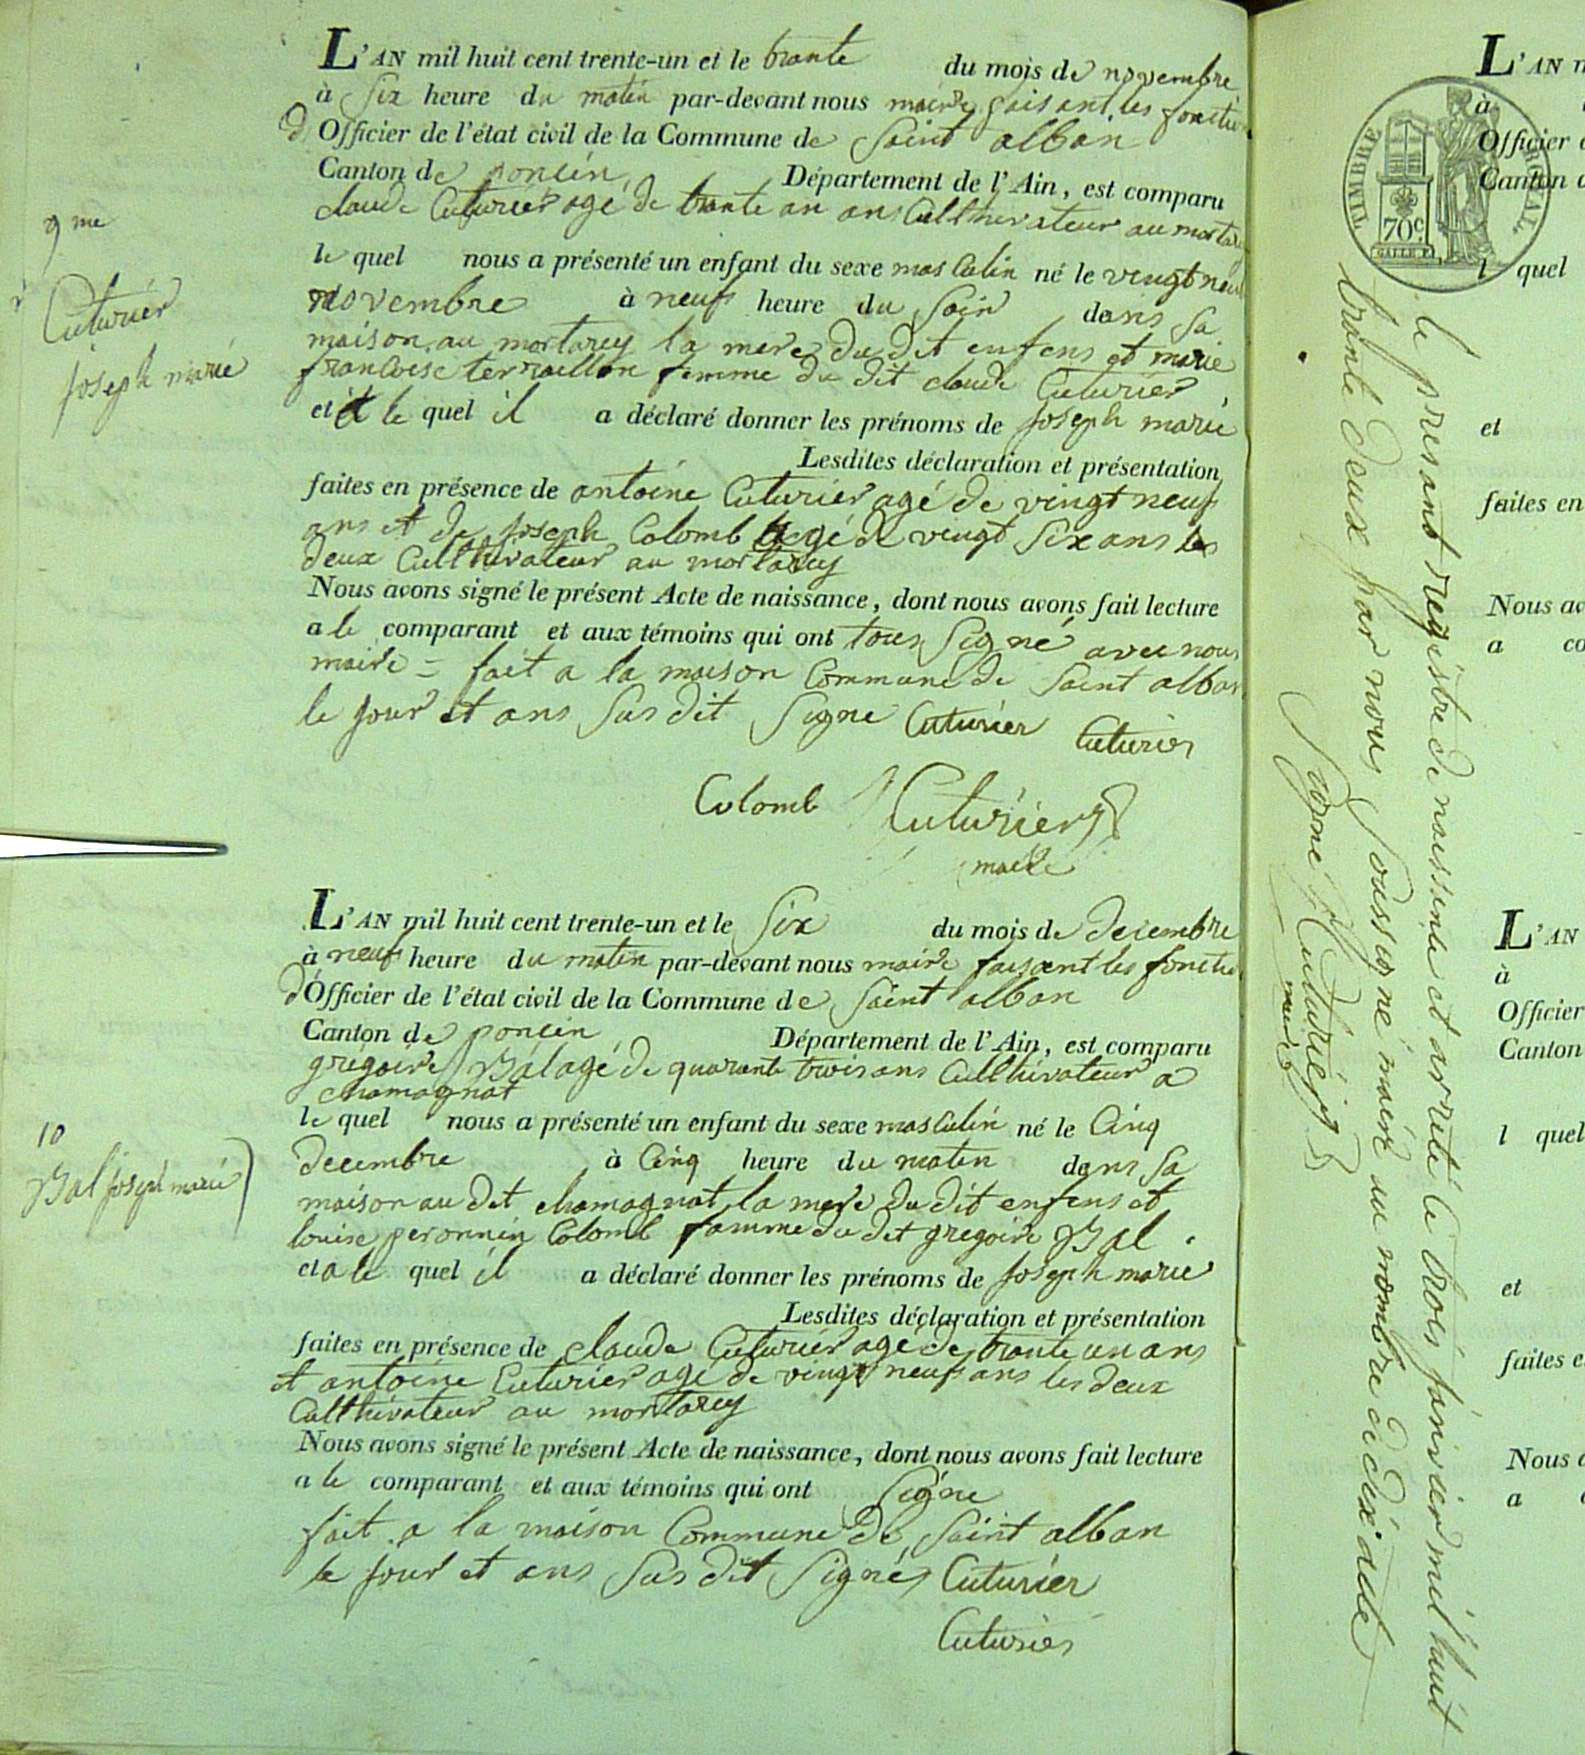 L'AN mil huit cent trente-un et le trante du mois de novembre
à Six heure du matin par-devant nous maire faisant les fonctio
d Officier de l'état civil de la Commune de Saint alban
Canton de poncin Département de l'Ain, est comparu
claude Cuturier agé de trante un ans Culthivateur au mortarey
le quel nous a présenté un enfant du sexe masCulin né le vingt neuf
novembre à neuf heure du Soir dans Sa
maison au mortarey la mere du dit enfens et marie
francoise terraillon femme du dit claude Cuturier
et à le quel il a déclaré donner les prénoms de joseph marie
Lesdites déclaration et présentation
faites en présence de antoine Cuturier agé de vingt neuf
ans et de joseph Colomb agé de vingt Six ans les
deux Culthivateur au mortarey
Nous avons signé le présent Acte de naissance, dont nous avons fait lecture
a le comparant et aux témoins qui ont tous Signé avec nous
maire = fait a la maison Commune de Saint alban
le jour et ans Sus dit Signe Cuturier Cuturier
Colomb Cuturier
maire
9 me
Cuturier
joseph marie
L'AN mil huit cent trente-un et le Six du mois de decembre
à neuf heure du matin par-devant nous maire faisant les fonctio
d Officier de l'état civil de la Commune de Saint alban
Canton de poncin Département de l'Ain, est comparu
gregoire Bal agé de quarante trois ans Culthivateur a
chamagnat
le quel nous a présenté un enfant du sexe masCulin né le Cinq
decembre à Cinq heure du matin dans Sa
maison au dit chamagnat la mere du dit enfens et
louise peronnin Colomb famme du dit gregoire Bal
et a le quel il a déclaré donner les prénoms de joseph marie
Lesdites déclaration et présentation
faites en présence de claude Cuturier agé de trante un ans
et antoine Cuturier agé de vingt neuf ans les deux
Culthivateur au mortarey
Nous avons signé le présent Acte de naissance, dont nous avons fait lecture
a le comparant et aux témoins qui ont Signe
fait a la maison Commune de Saint alban
le jour et ans Sus dit Signés Cuturier
Cuturier
10
Bal joseph marie
le present registre de naissence et arreté le trois janvier mil huit
trante deux par nous Soussigné maire au nombre de dix acte
Signé Cuturier
maire
TIMBRE ROYAL
70c
L'AN
à
Officier
Canton
l quel
et
faites en
Nous av
a co
L'AN
à
Officier
Canton
l quel
et
faites e
Nous a
a